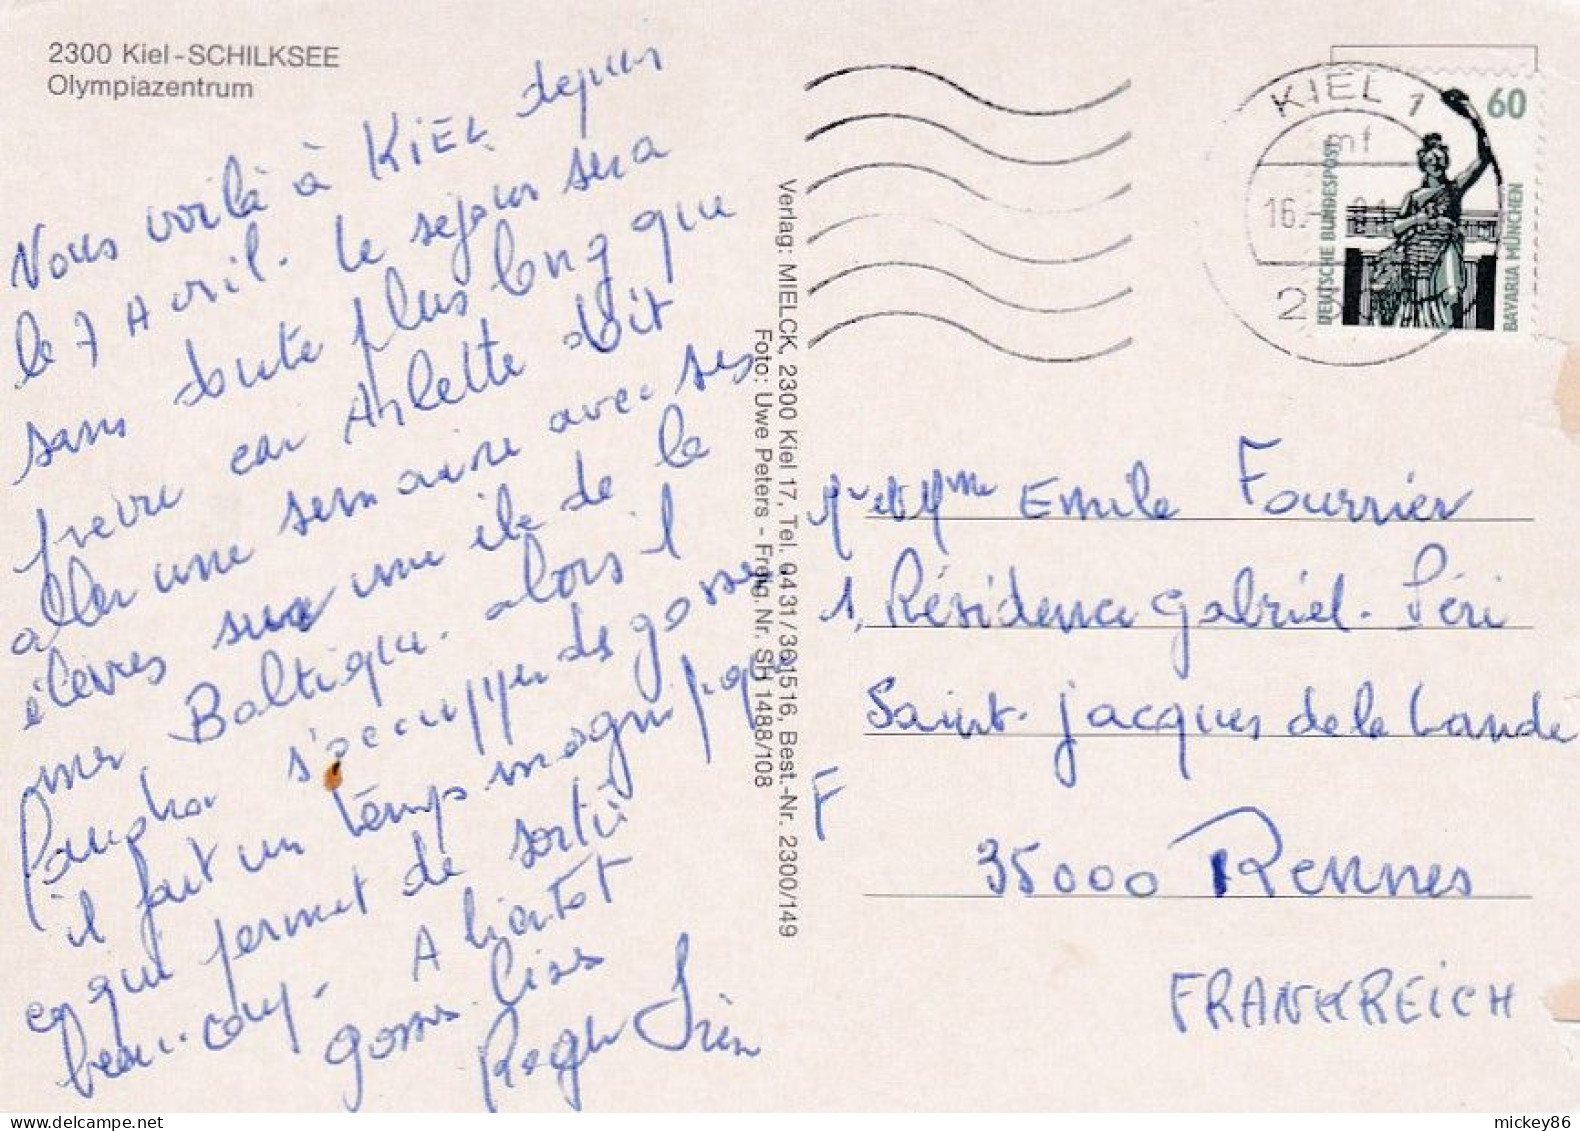 2300 Kiel-SCHILKSEE
Olympiazentrum
Nous voilà à KIEL depuis
le 7 Avril. Le séjour sera
sans doute plus long que
car Arlette doit
aller une semaine avec ses
élèves sur une île de la
mer Baltique. alors il
s'occuper des gosses
il fait un temps magnifique
ce qui permet de sortir
beaucoup. A bientôt
grosses bises
Verlag: MIELCK, 2300 Kiel 17, Tel. 0431/361516, Best.-Nr. 2300/149
Foto: Uwe Peters - Freig.Nr. SH 1488/108
KIEL 1
mf
16.
60
DEUTSCHE BUNDESPOST
BAVARIA MÜNCHEN
Mr et Mme Emile Fourrier
1, Résidence Gabriel Péri
Saint-Jacques de la Lande
F
35000 Rennes
FRANKREICH
mickey86